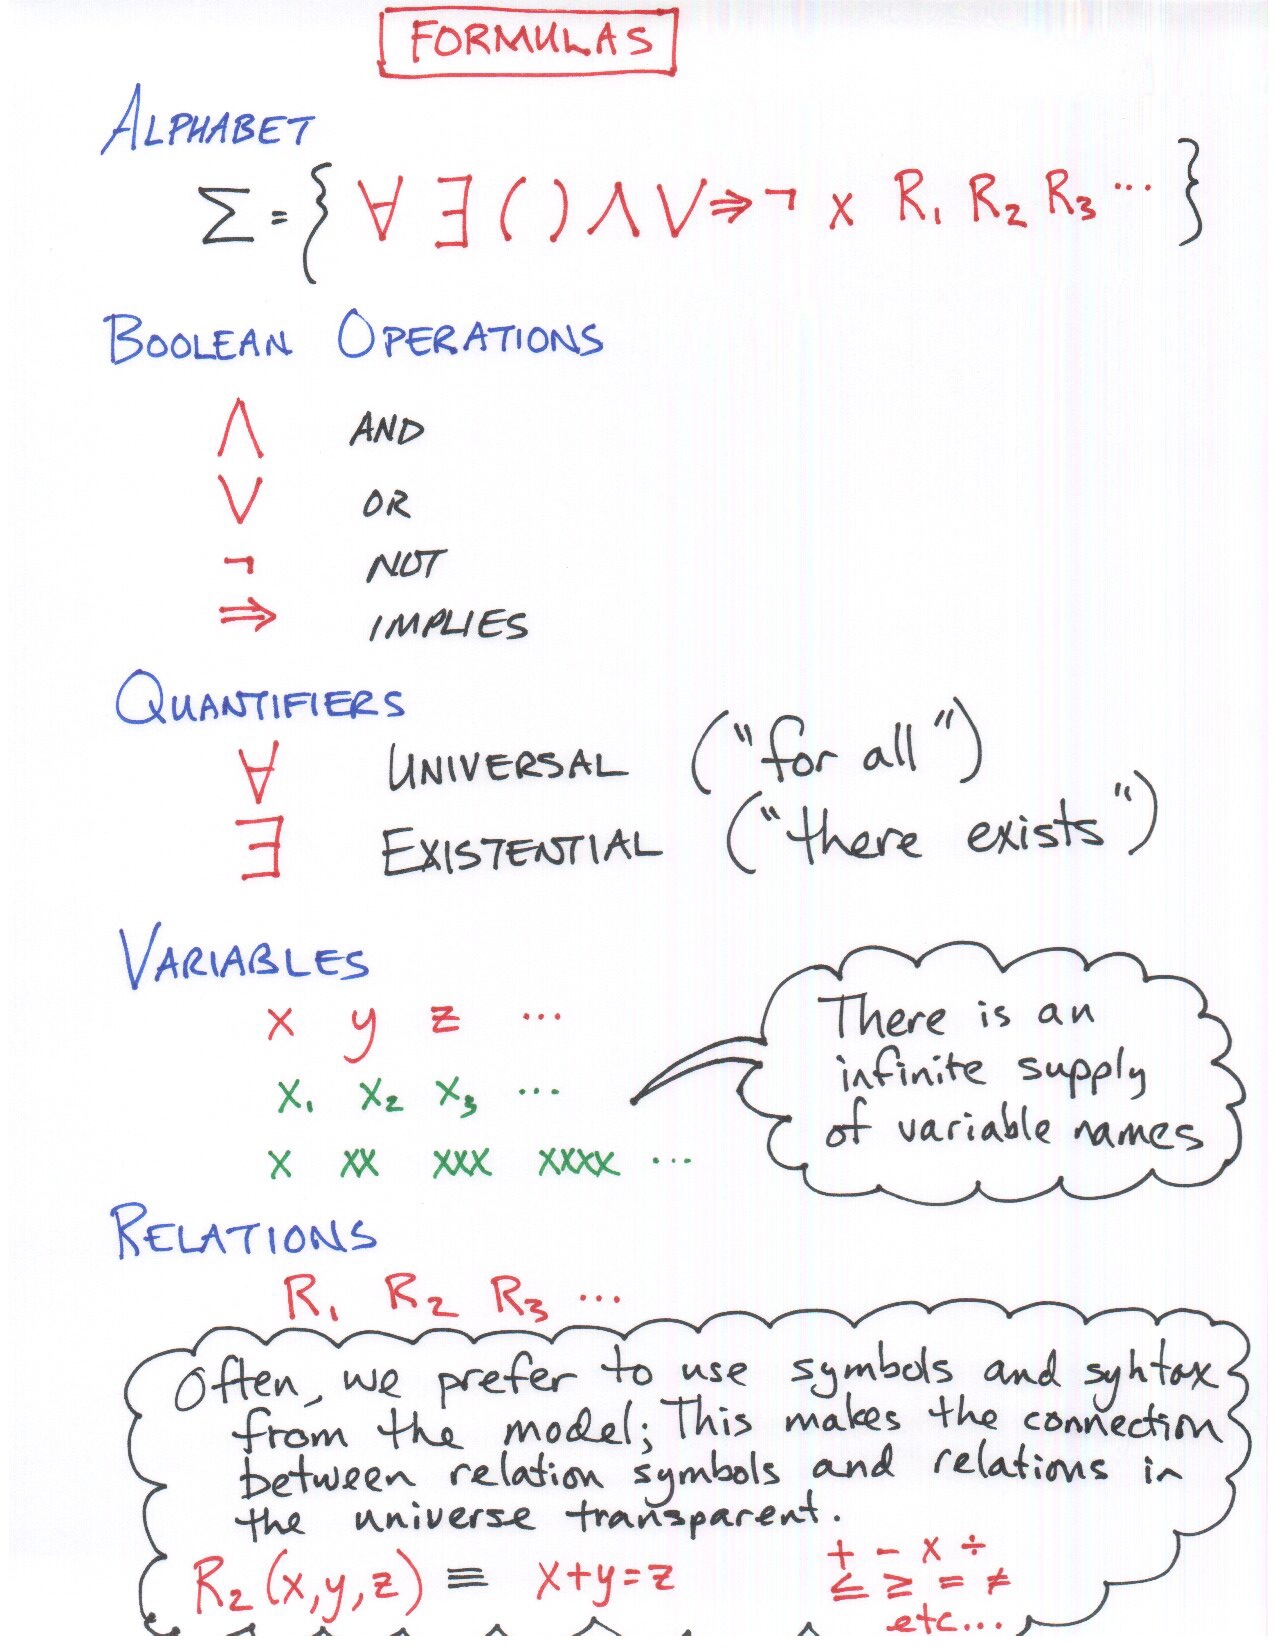 FORMULAS
ALPHABET
Σ = { ∀ ∃ ( ) ∧ ∨ ⇒ ¬ x R₁ R₂ R₃ ··· }
BOOLEAN OPERATIONS
∧ AND
∨ OR
¬ NOT
⇒ IMPLIES
QUANTIFIERS
∀ UNIVERSAL ("for all")
∃ EXISTENTIAL ("there exists")
VARIABLES
x y z ···
x₁ x₂ x₃ ···
x xx xxx xxxx ···
There is an
infinite supply
of variable names
RELATIONS
R₁ R₂ R₃ ···
Often, we prefer to use symbols and syntax
from the model; This makes the connection
between relation symbols and relations in
the universe transparent.
R₂(x,y,z) ≡ x+y=z
+ - x ÷
≤ ≥ = ≠
etc...